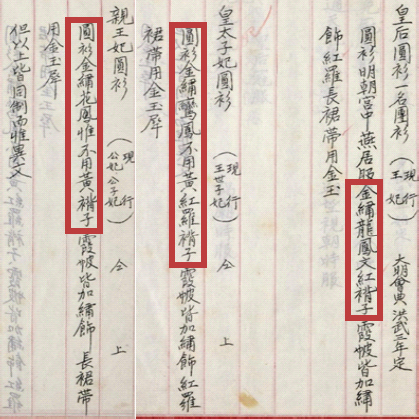 皇后圓衫一名團衫（現行王妃）大明會典 洪武三年定
圓衫明朝宮中燕居服金繡龍鳳文紅褙子霞帔皆加繡
飾紅羅長裙帶用金玉
皇太子妃圓衫（現行王世子妃）仝 上
圓衫金繡鸞鳳不用黃紅羅褙子霞帔皆加繡飾紅羅
裙帶用金玉犀
親王妃圓衫（現行公妃公子妃）仝 上
圓衫金繡花鳳惟不用黃褙子霞帔皆加繡飾 長裙帶
用金玉犀
但以上皆同制而惟異文